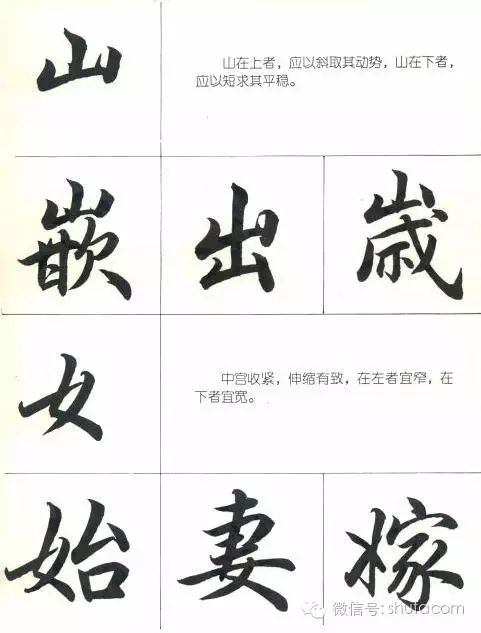 山
山在上者，应以斜取其动势，山在下者，
应以短求其平稳。
嵌 出 歳
女
中宫收紧，伸缩有致，在左者宜窄，在
下者宜宽。
始 妻 嫁
微信号: shufacom